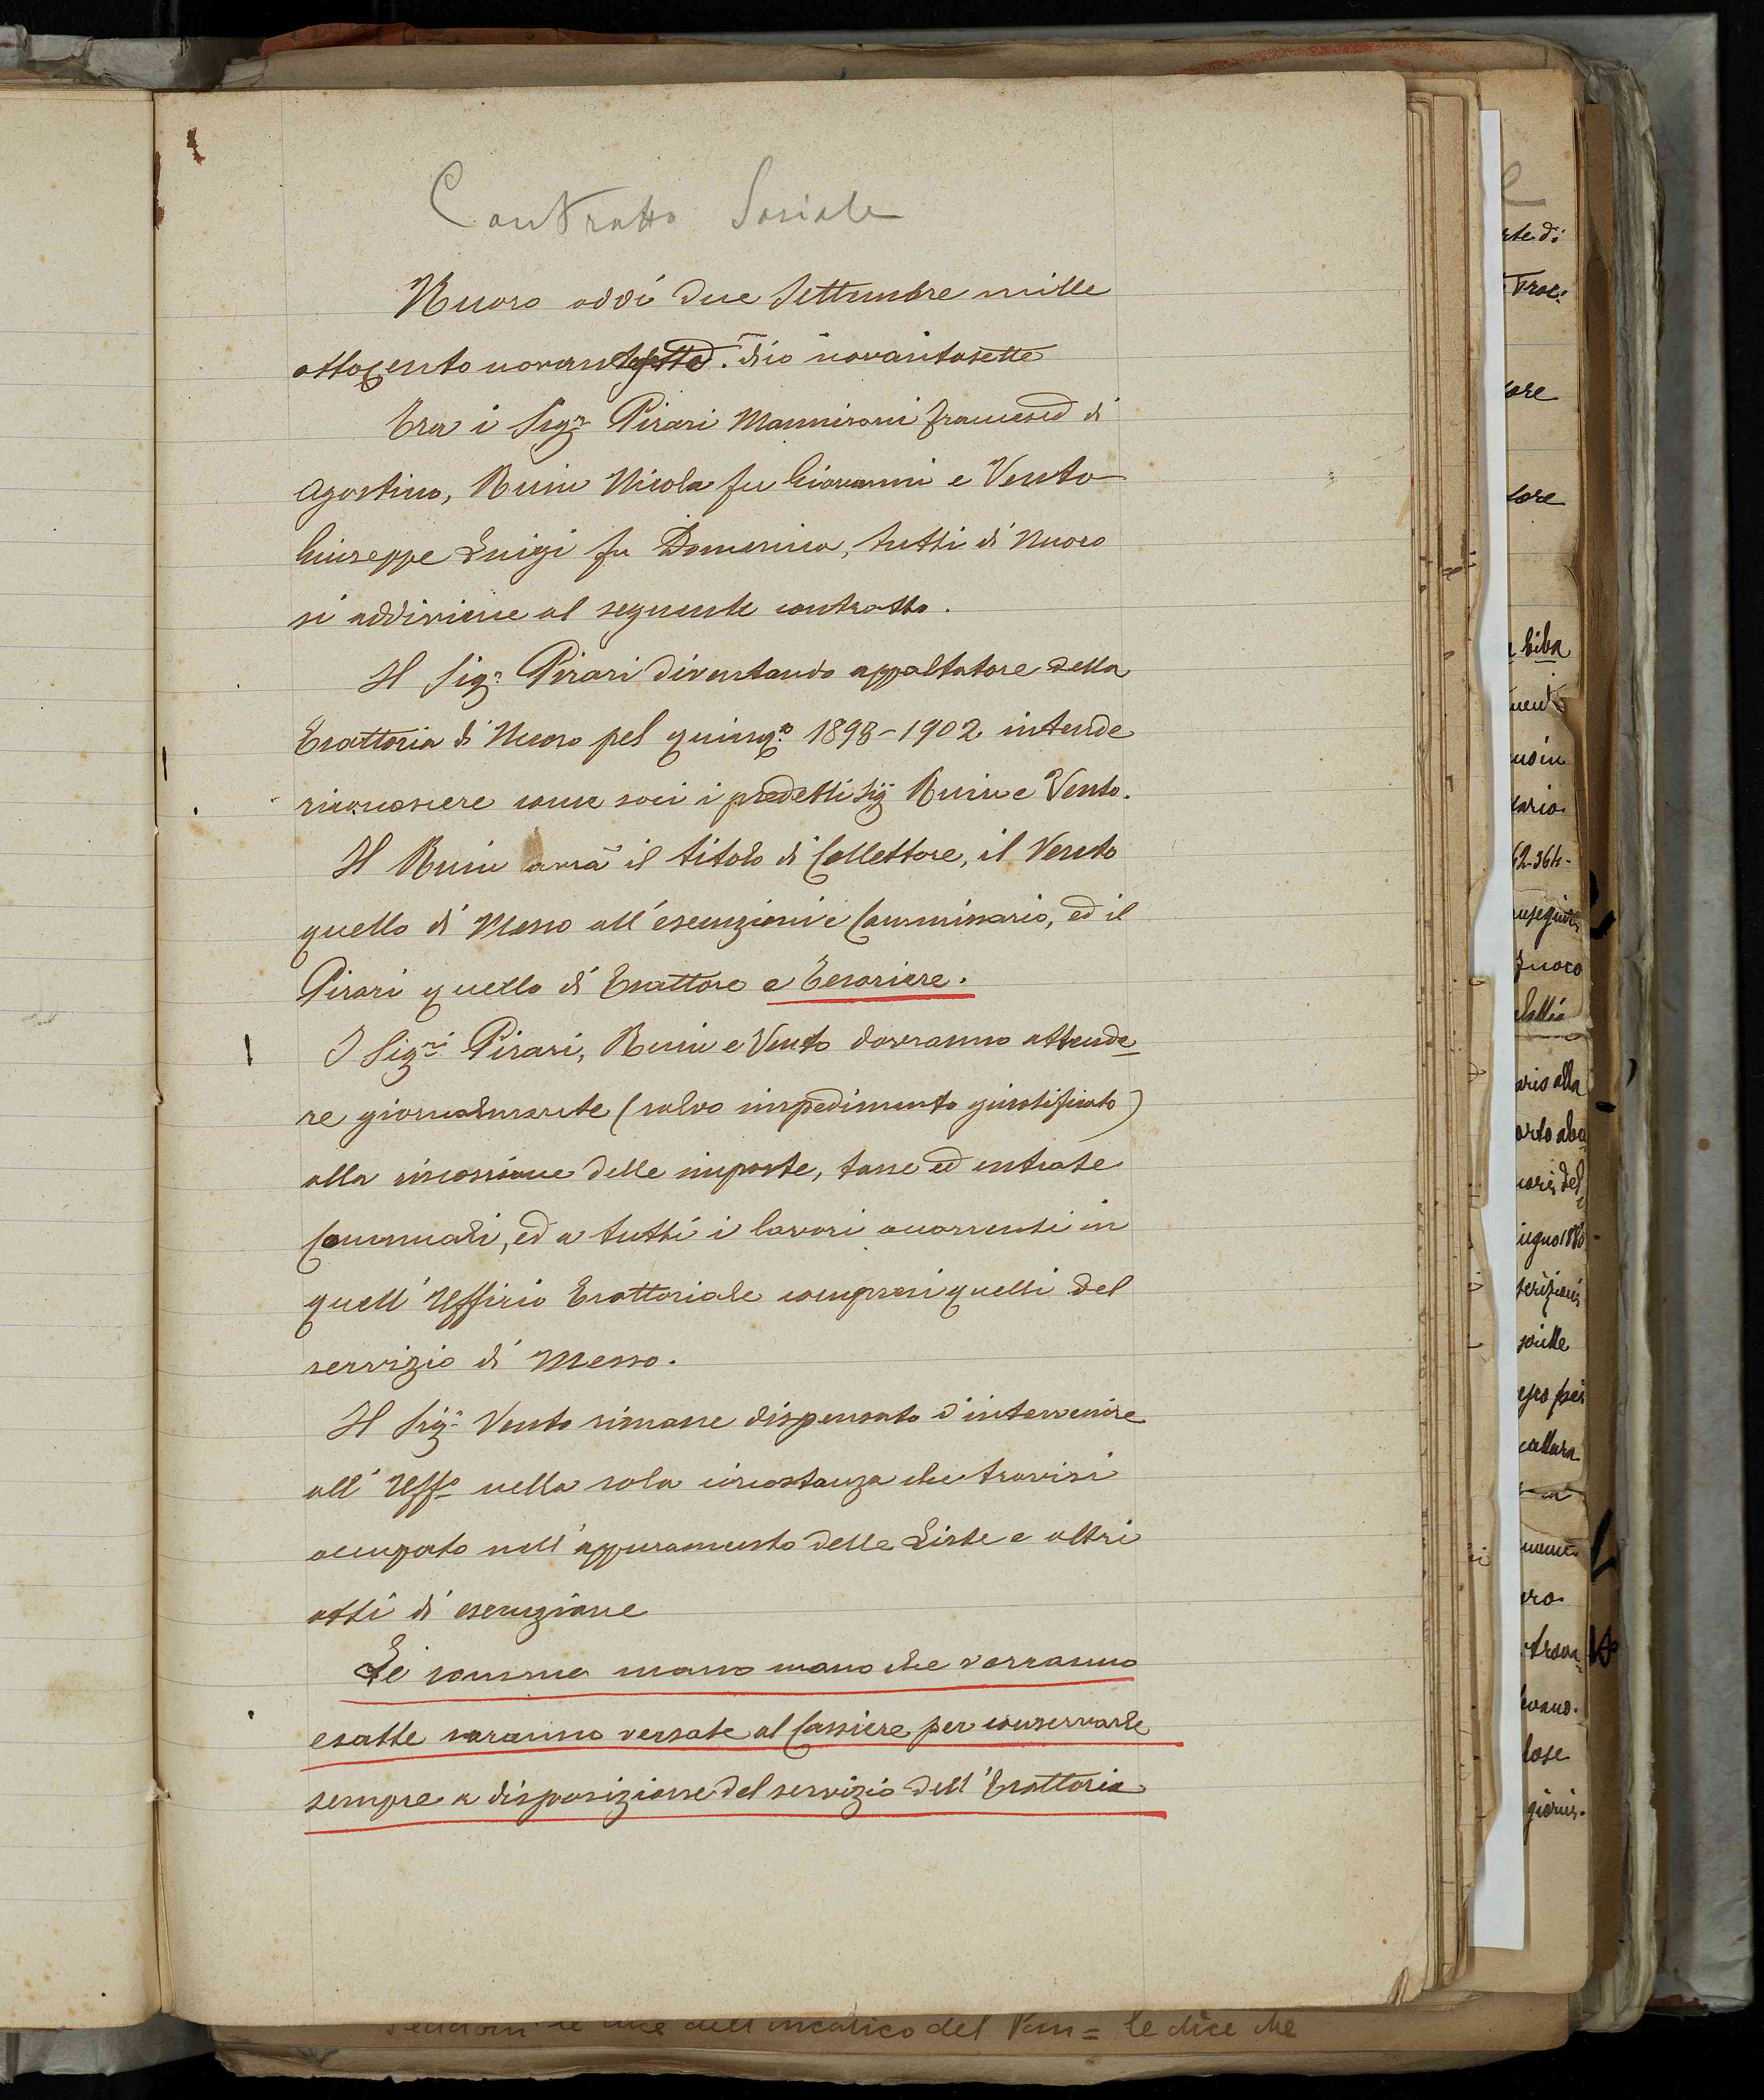 Contratto Sociale
Nuoro addì due Settembre mille
ottocento novantasette. dico novantasette
Tra i Sigri Pirari Mannironi Francesco di
Agostino, Ruiu Nicola fu Giovanni e Vento
Giuseppe Luigi fu Domenico, tutti di Nuoro
si addiviene al seguente contratto.
Il Sigr Pirari diventando appaltatore della
Esattoria di Nuoro pel quinqo 1898-1902 intende
riconoscere come soci i predetti Sigi Ruiu e Vento.
Il Ruiu avrà il titolo di Collettore, il Vento
quello di Messo all'esecuzioni e Commissario, ed il
Pirari quello di Esattore e Tesoriere.
I Sigri Pirari, Ruiu e Vento dovranno attende=
re giornalmente (salvo impedimento giustificato)
alla riscossione delle imposte, tasse ed entrate
Comunali, ed a tutti i lavori occorrenti in
quell'Ufficio Esattoriale compresi quelli del
servizio di Messo.
Il Sigr Vento rimane dispensato d'intervenire
all'Uffo nella sola circostanza che trovisi
occupato nell'appuramento delle Liste e altri
atti di esecuzione
Le somme mano mano che verranno
esatte saranno versate al Cassiere per conservarle
sempre a disposizione del servizio dell'Esattoria
rte di
ore
tore
Ciba
tario
62-364-
Fuoco
aris alla
del
iugno 1880
scrizioni
cattura
ro
giorni.
dell'incarico del Pm = le dice che